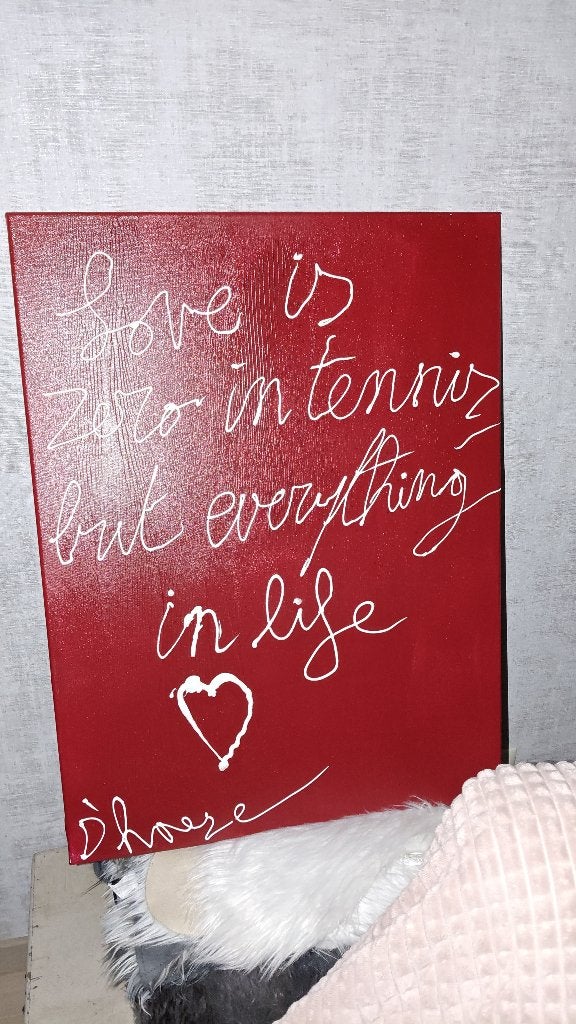 Love is
zero in tennis
but everything
in life
D'hoese